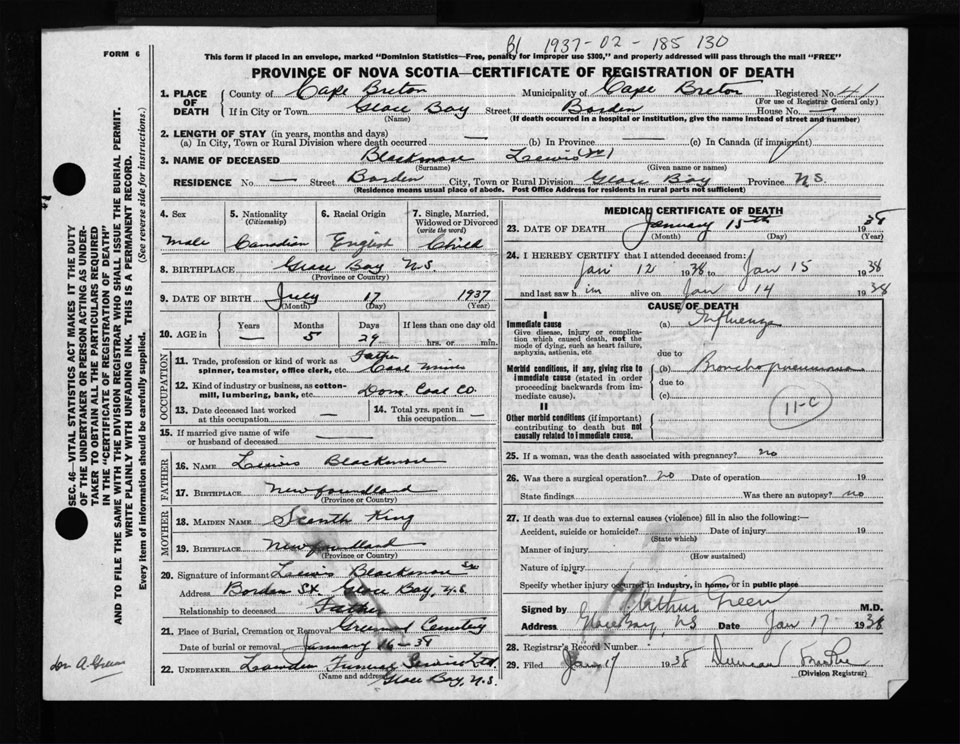 FORM 6
B1 1937-02-185 130
This form if placed in an envelope, marked "Dominion Statistics—Free, penalty for improper use $300," and properly addressed will pass through the mail "FREE"
PROVINCE OF NOVA SCOTIA—CERTIFICATE OF REGISTRATION OF DEATH
1. PLACE OF DEATH County of Cape Breton Municipality of Cape Breton Registered No. 41
(For use of Registrar General only)
If in City or Town Glace Bay Street Borden House No. —
(Name) (If death occurred in a hospital or institution, give the name instead of street and number)
2. LENGTH OF STAY (in years, months and days)
(a) In City, Town or Rural Division where death occurred — (b) In Province — (c) In Canada (if immigrant)
3. NAME OF DECEASED Blackmore Lewis (Jr)
(Surname) (Given name or names)
RESIDENCE No. — Street Borden City, Town or Rural Division Glace Bay Province N.S.
(Residence means usual place of abode. Post Office Address for residents in rural parts not sufficient)
4. Sex Male
5. Nationality (Citizenship) Canadian
6. Racial Origin English
7. Single, Married, Widowed or Divorced (write the word) Child
8. BIRTHPLACE Glace Bay N.S.
(Province or Country)
9. DATE OF BIRTH July 17 1937
(Month) (Day) (Year)
10. AGE in Years — Months 5 Days 29 If less than one day old hrs. or min.
OCCUPATION
11. Trade, profession or kind of work as spinner, teamster, office clerk, etc. Father Coal Mines
12. Kind of industry or business, as cotton-mill, lumbering, bank, etc. Dom. Coal Co.
13. Date deceased last worked at this occupation —
14. Total yrs. spent in this occupation —
15. If married give name of wife or husband of deceased —
FATHER
16. NAME Lewis Blackmore
17. BIRTHPLACE Newfoundland
(Province or Country)
MOTHER
18. MAIDEN NAME King
19. BIRTHPLACE Newfoundland
(Province or Country)
20. Signature of informant Lewis Blackmore Sr
Address Borden St. Glace Bay, N.S.
Relationship to deceased Father
21. Place of Burial, Cremation or Removal Greenwood Cemetery
Date of burial or removal January 16-38
22. UNDERTAKER Funeral Service Ltd
(Name and address) Glace Bay, N.S.
MEDICAL CERTIFICATE OF DEATH
23. DATE OF DEATH January 15th 1938
(Month) (Day) (Year)
24. I HEREBY CERTIFY that I attended deceased from:
Jan 12 1938 to Jan 15 1938
and last saw him alive on Jan 14 1938
CAUSE OF DEATH
I
Immediate cause (a) Influenza
Give disease, injury or complication which caused death, not the mode of dying, such as heart failure, asphyxia, asthenia, etc
due to
Morbid conditions, if any, giving rise to immediate cause (stated in order proceeding backwards from immediate cause). (b) Bronchopneumonia
due to
(c)
11-C
II
Other morbid conditions (if important) contributing to death but not causally related to immediate cause.
25. If a woman, was the death associated with pregnancy? no
26. Was there a surgical operation? no Date of operation 19
State findings Was there an autopsy? no
27. If death was due to external causes (violence) fill in also the following:—
Accident, suicide or homicide? Date of injury 19
(State which)
Manner of injury
(How sustained)
Nature of injury
Specify whether injury occurred in industry, in home, or in public place
Signed by Arthur Green M.D.
Address Glace Bay, NS Date Jan 17 1938
28. Registrar's Record Number
29. Filed Jan 17 1938 Duncan
(Division Registrar)
SEC. 46—VITAL STATISTICS ACT MAKES IT THE DUTY
OF THE UNDERTAKER OR PERSON ACTING AS UNDER-
TAKER TO OBTAIN ALL THE PARTICULARS REQUIRED
IN THE "CERTIFICATE OF REGISTRATION OF DEATH"
AND TO FILE THE SAME WITH THE DIVISION REGISTRAR WHO SHALL ISSUE THE BURIAL PERMIT.
WRITE PLAINLY WITH UNFADING INK. THIS IS A PERMANENT RECORD.
Every item of information should be carefully supplied. (See reverse side for instructions.)
A. Green